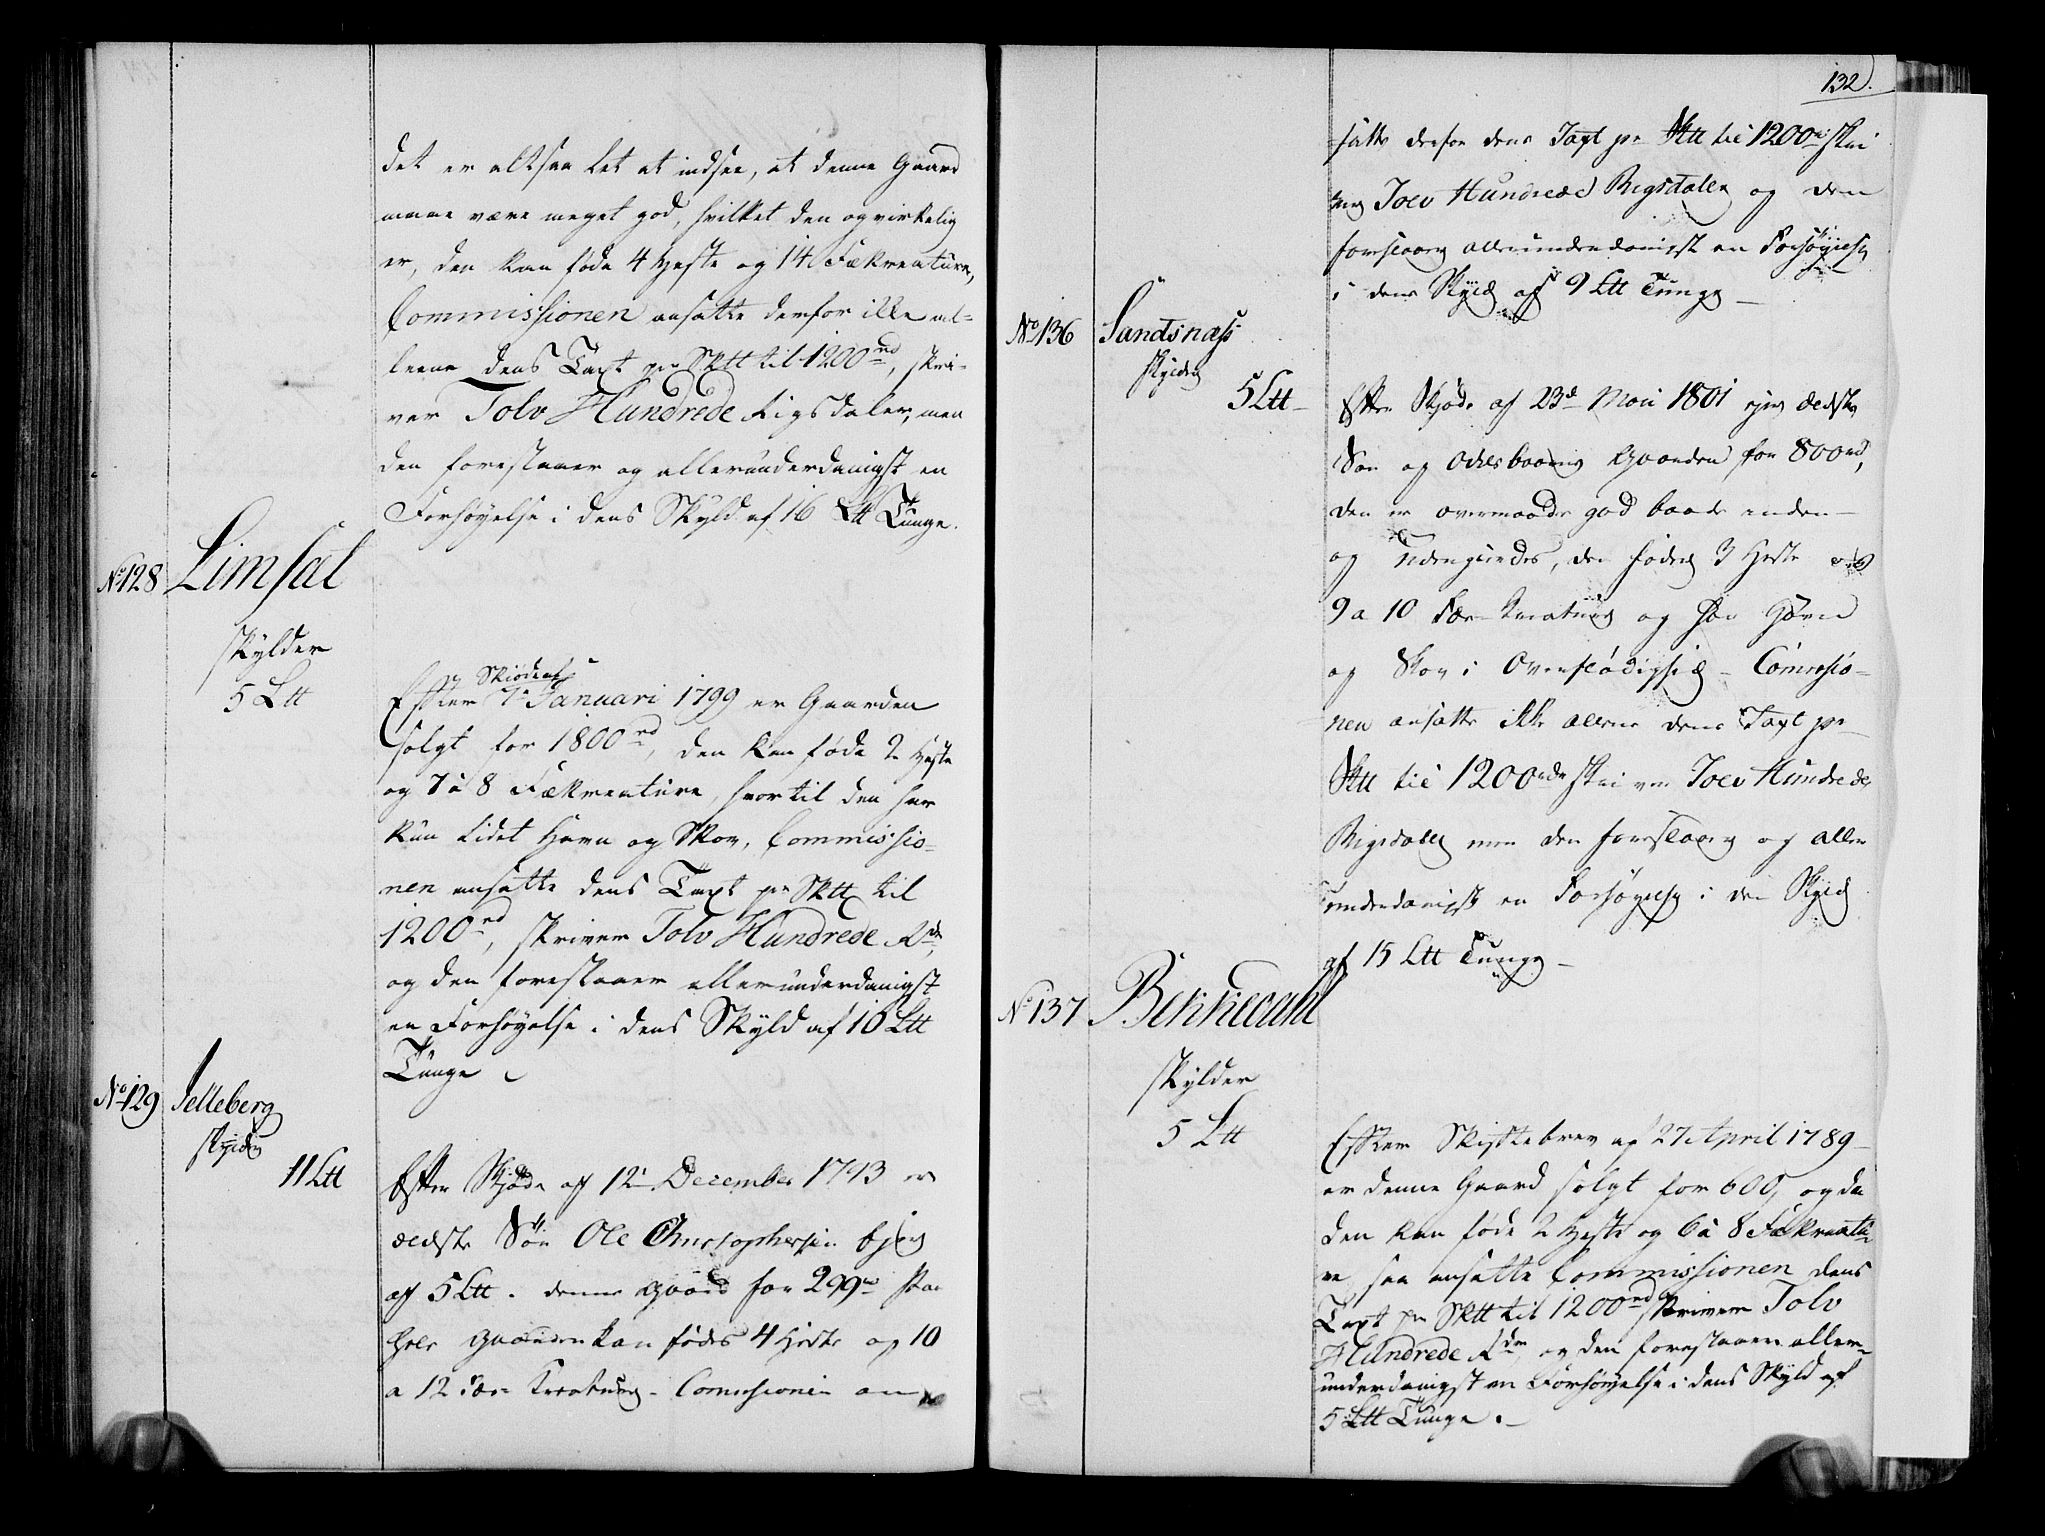 det er altsaa let at indsee, at denne Gaard
maae være meget god, hvilket den og virkelig
er, den kan føde 4 Heste og 14 Fækreature,
Commissionen ansatte derfor ikke al-
leene dens Taxt pr Sktt til 1200rd, skri-
ver Tolv Hundrede Rigsdaler, men
den foreslaaer og allerunderdanigst en
Forhøyelse i dens Skyld af 16 Ltt Tunge.
No 128 Limsæt
skylder
5 Ltt
Efter Skiøde af 7de Januari 1799 er Gaarden
solgt for 1800rd, den kan føde 2 Heste
og 7 a 8 Fækreature, hvortil den har
kun lidet Havn og Skov, Commissio-
nen ansatte dens Taxt pr Sktt til
1200rd, skriver Tolv Hundrede Rdr
og den foreslaaer allerunderdanigst
en Forhøyelse i dens Skyld af 10 Ltt
Tunge
No 129 Selleberg
skylder
11 Ltt
Efter Skjøde af 12te December 1793 er
ældste Søn Ole Christophersen Ejer
af 5 Ltt. denne Gaard for 299rd paa
hele Gaarden kan fødes 4 Heste og 10
a 12 Fæe Kreaturer - Comissionen an
132.
satte derfor dens Taxt pr Sktt til 1200rd skri
ver Tolv Hundrede Rigsdaler og den
foreslaaer allerunderdanigst en Forhøyelse
i dens Skyld af 9 Ltt Tunge
No 136 Sandsnæss
skylder
5 Ltt
Efter Skjøde af 23de Maii 1801 ejer ældste
Søn og Odelsbaaren Gaarden for 800rd,
den er overmaade god baade inden-
og udengierdes, den føder 3 Heste og
9 a 10 Fæe Kreaturer og har Havn
og Skov i Overflødighed - Comissio-
nen ansatte ikke allene dens Taxt pr
Sktt til 1200rdr skriver Tolv Hundrede
Rigsdaler men den foreslaaer og aller
underdanigst en Forhøyelse i den Skyld
af 15 Ltt Tunge
No 137 Bekkevahl
skylder
5 Ltt
Efter Skiftebrev af 27 April 1789
er denne Gaard solgt for 600, og da
den kan føde 2 Heste og 6 à 8 Fækreatu-
re, saa ansatte Commissionen dens
Taxt pr Sktt til 1200rd skriver Tolv
Hundrede Rdr, og den foreslaaer aller-
underdanigst en Forhøyelse i dens Skyld af
5 Ltt Tunge.